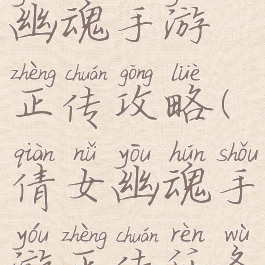 幽魂手游
zhèng chuán gōng lüè
正传攻略(
qiàn nǚ yōu hún shǒu
倩女幽魂手
yóu zhèng chuán rèn wù
游正传任务